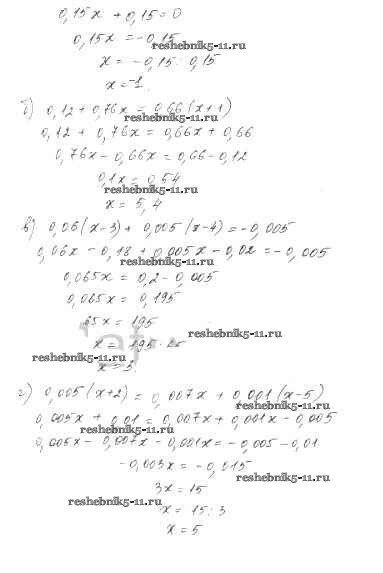 0,15x + 0,15 = 0
0,15x = -0,15
reshebnik5-11.ru
x = -0,15 : 0,15
x = -1.
б) 0,12 + 0,76x = 0,66(x+1)
reshebnik5-11.ru
0,12 + 0,76x = 0,66x + 0,66
0,76x - 0,66x = 0,66 - 0,12
0,1x = 0,54
reshebnik5-11.ru
x = 5,4
в) 0,06(x-3) + 0,005(x-4) = -0,005
0,06x - 0,18 + 0,005x - 0,02 = -0,005
reshebnik5-11.ru
0,065x = 0,2 - 0,005
0,065x = 0,195
65x = 195
reshebnik5-11.ru
x = 195 :
reshebnik5-11.ru
x = 3.
г) 0,005(x+2) = 0,007x + 0,001(x-5)
reshebnik5-11.ru
0,005x + 0,01 = 0,007x + 0,001x - 0,005
reshebnik5-11.ru
0,005x - 0,007x - 0,001x = -0,005 - 0,01
-0,003x = -0,015
reshebnik5-11.ru
3x = 15
reshebnik5-11.ru
x = 15 : 3
x = 5